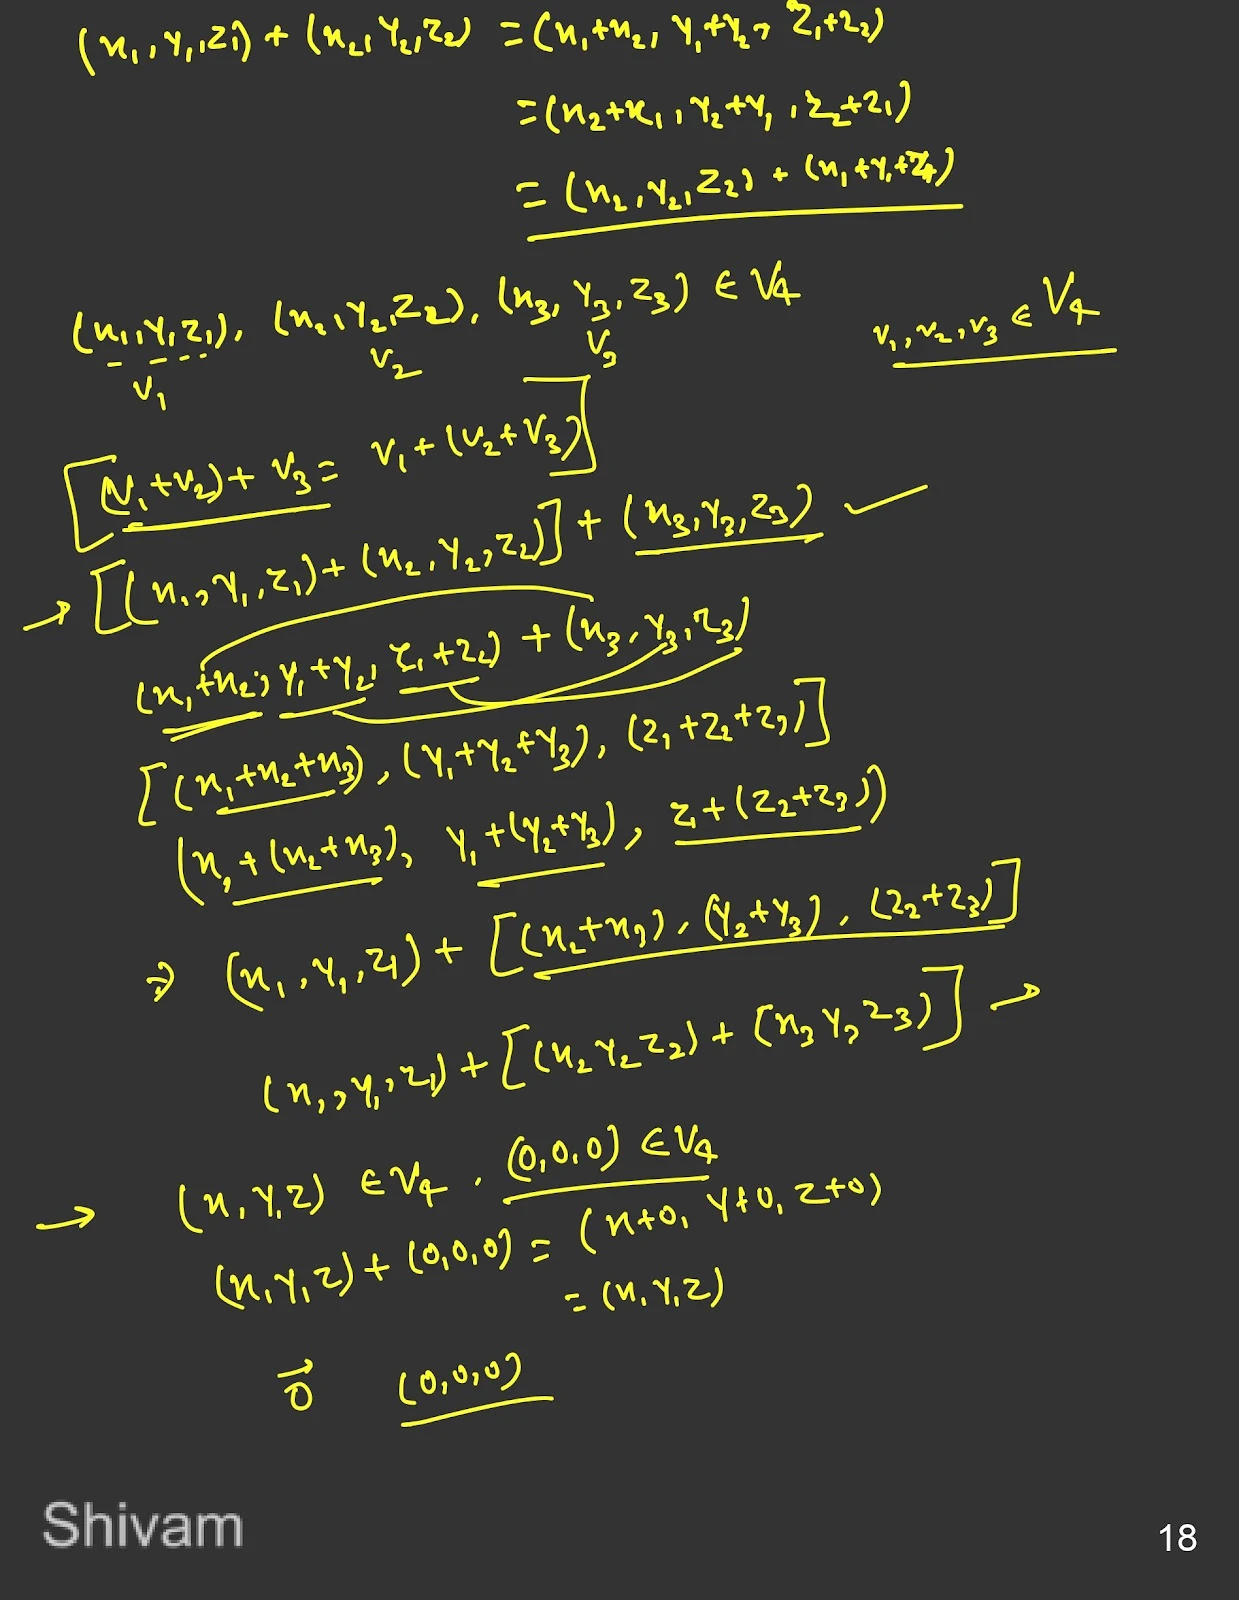 (x₁, y₁, z₁) + (x₂, y₂, z₂) = (x₁+x₂, y₁+y₂, z₁+z₂)
= (x₂+x₁, y₂+y₁, z₂+z₁)
= (x₂, y₂, z₂) + (x₁+y₁+z₁)
(x₁, y₁, z₁), (x₂, y₂, z₂), (x₃, y₃, z₃) ∈ V₄
v₁ v₂ v₃
v₁, v₂, v₃ ∈ V₄
[(v₁+v₂)+v₃ = v₁+(v₂+v₃)]
→ [(x₁, y₁, z₁)+(x₂, y₂, z₂)] + (x₃, y₃, z₃) ✓
(x₁+x₂, y₁+y₂, z₁+z₂) + (x₃, y₃, z₃)
[(x₁+x₂+x₃), (y₁+y₂+y₃), (z₁+z₂+z₃)]
(x₁+(x₂+x₃), y₁+(y₂+y₃), z₁+(z₂+z₃))
⇒ (x₁, y₁, z₁) + [(x₂+x₃), (y₂+y₃), (z₂+z₃)]
(x₁, y₁, z₁) + [(x₂ y₂ z₂) + (x₃ y₃ z₃)] →
→ (x, y, z) ∈ V₄, (0, 0, 0) ∈ V₄
(x, y, z) + (0, 0, 0) = (x+0, y+0, z+0)
= (x, y, z)
0⃗ (0, 0, 0)
Shivam
18